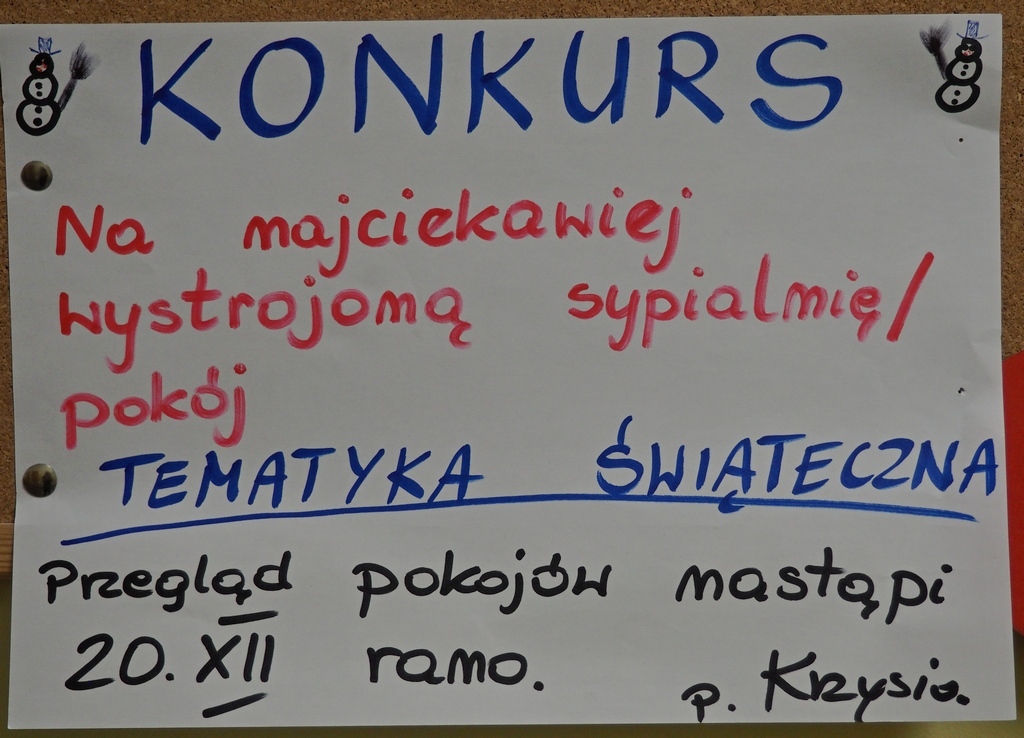 KONKURS
Na najciekawiej
wystrojoną sypialnię/
pokój
TEMATYKA ŚWIĄTECZNA
Przegląd pokojów nastąpi
20. XII rano.
p. Krzysia.